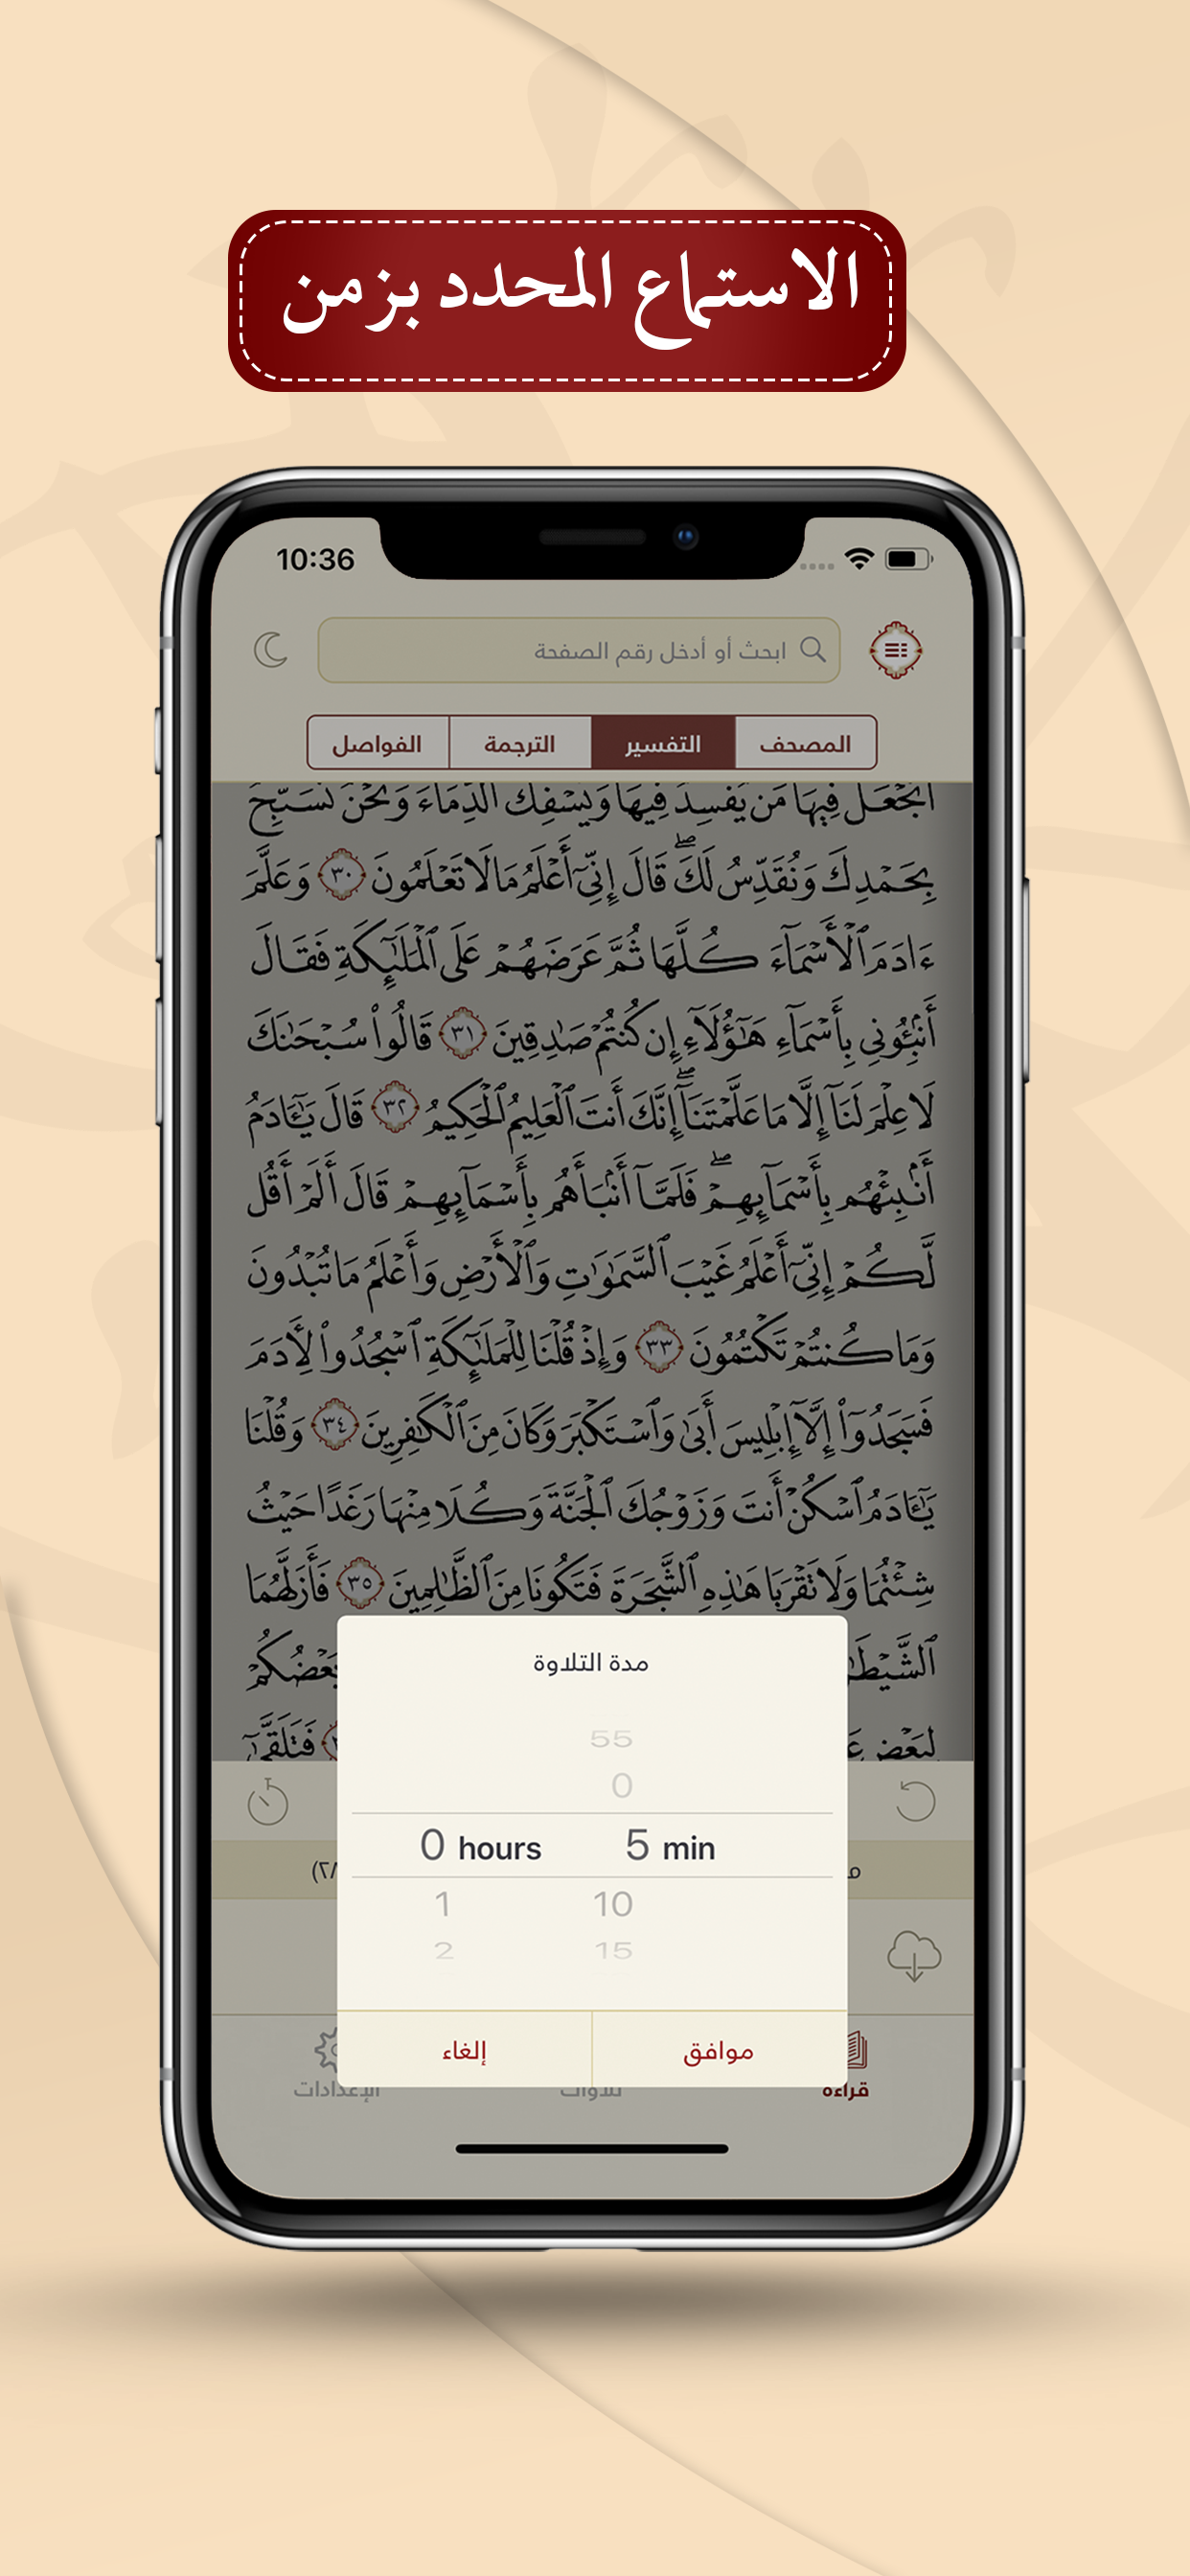 الاستماع المحدد بزمن
10:36
ابحث أو أدخل رقم الصفحة
المصحف التفسير الترجمة الفواصل
أَتَجْعَلُ فِيهَا مَن يُفْسِدُ فِيهَا وَيَسْفِكُ ٱلدِّمَآءَ وَنَحْنُ نُسَبِّحُ
بِحَمْدِكَ وَنُقَدِّسُ لَكَۖ قَالَ إِنِّيٓ أَعْلَمُ مَا لَا تَعْلَمُونَ ٣٠ وَعَلَّمَ
ءَادَمَ ٱلْأَسْمَآءَ كُلَّهَا ثُمَّ عَرَضَهُمْ عَلَى ٱلْمَلَـٰٓئِكَةِ فَقَالَ
أَنۢبِـُٔونِي بِأَسْمَآءِ هَـٰٓؤُلَآءِ إِن كُنتُمْ صَـٰدِقِينَ ٣١ قَالُوا۟ سُبْحَـٰنَكَ
لَا عِلْمَ لَنَآ إِلَّا مَا عَلَّمْتَنَآۖ إِنَّكَ أَنتَ ٱلْعَلِيمُ ٱلْحَكِيمُ ٣٢ قَالَ يَـٰٓـَٔادَمُ
أَنۢبِئْهُم بِأَسْمَآئِهِمْۖ فَلَمَّآ أَنۢبَأَهُم بِأَسْمَآئِهِمْ قَالَ أَلَمْ أَقُل
لَّكُمْ إِنِّيٓ أَعْلَمُ غَيْبَ ٱلسَّمَـٰوَٰتِ وَٱلْأَرْضِ وَأَعْلَمُ مَا تُبْدُونَ
وَمَا كُنتُمْ تَكْتُمُونَ ٣٣ وَإِذْ قُلْنَا لِلْمَلَـٰٓئِكَةِ ٱسْجُدُوا۟ لِـَٔادَمَ
فَسَجَدُوٓا۟ إِلَّآ إِبْلِيسَ أَبَىٰ وَٱسْتَكْبَرَ وَكَانَ مِنَ ٱلْكَـٰفِرِينَ ٣٤ وَقُلْنَا
يَـٰٓـَٔادَمُ ٱسْكُنْ أَنتَ وَزَوْجُكَ ٱلْجَنَّةَ وَكُلَا مِنْهَا رَغَدًا حَيْثُ
شِئْتُمَا وَلَا تَقْرَبَا هَـٰذِهِ ٱلشَّجَرَةَ فَتَكُونَا مِنَ ٱلظَّـٰلِمِينَ ٣٥ فَأَزَلَّهُمَا
بَعْضُكُمْ
لِبَعْضٍ فَتَلَقَّىٰٓ
مدة التلاوة
55
0
0 hours 5 min
1 10
2 15
موافق إلغاء
قراءة تلاوات الإعدادات